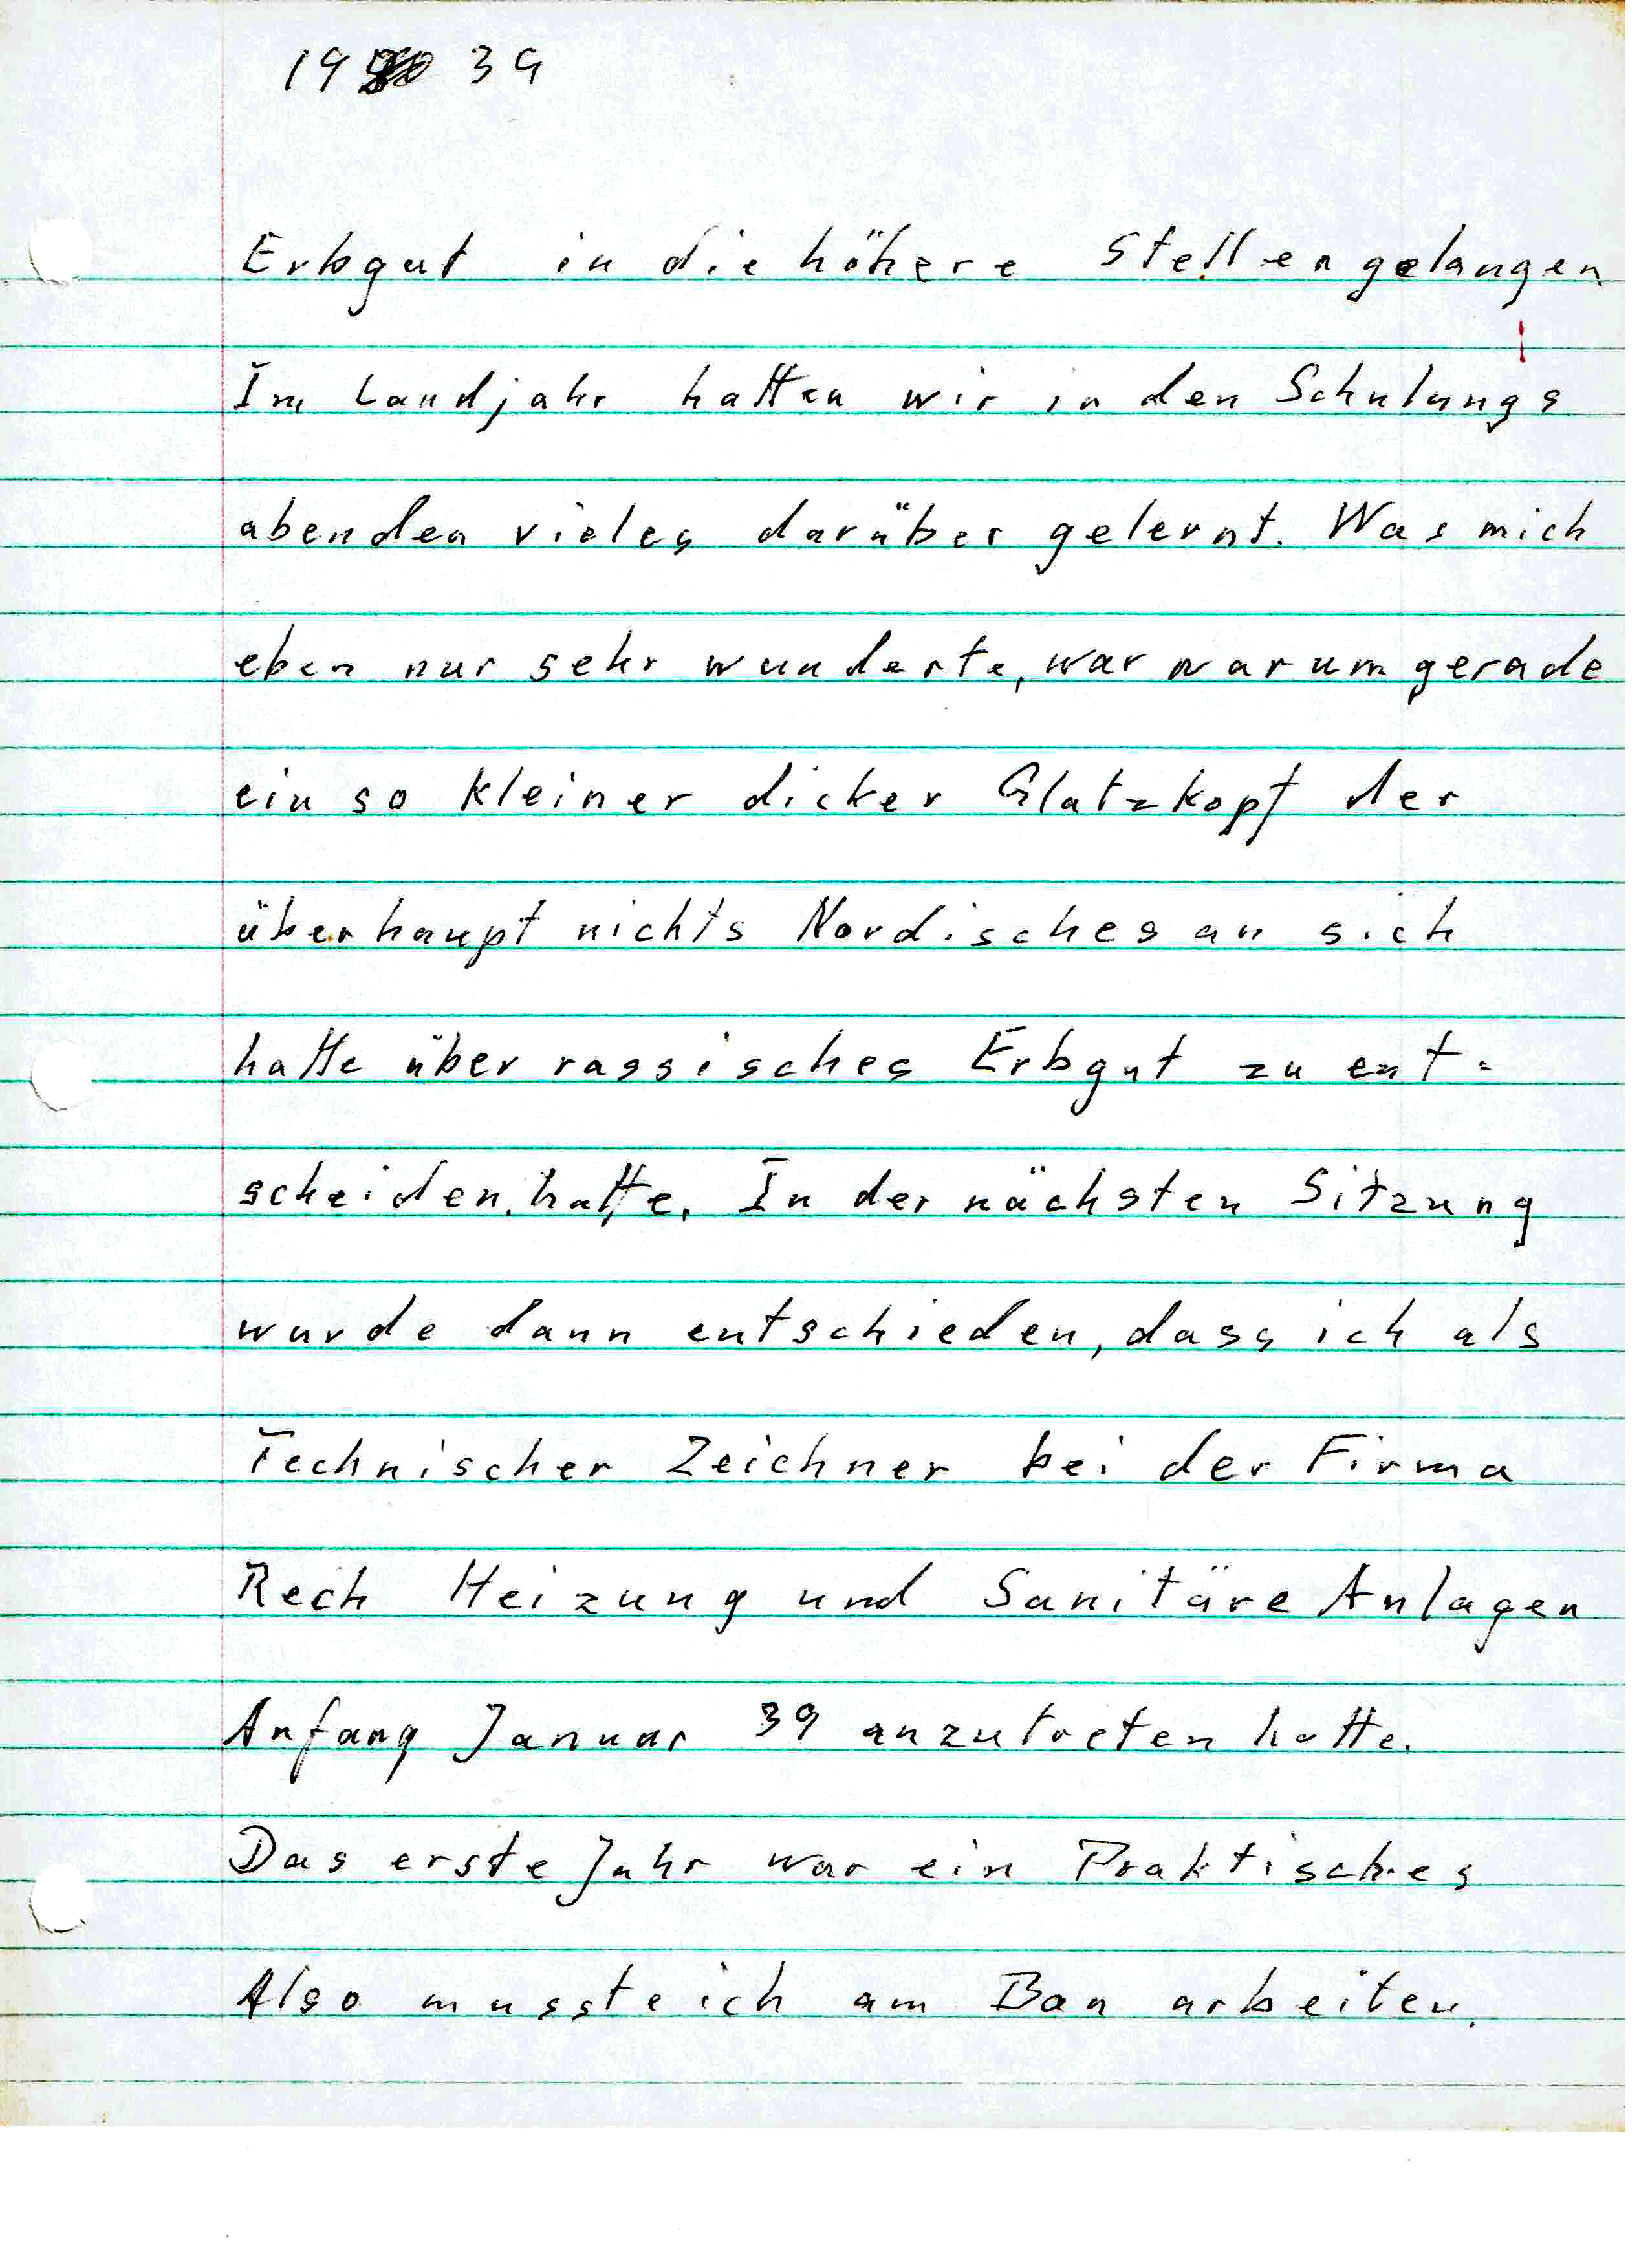 19 39
Erbgut in die höhere Stellen gelangen
Im Landjahr hatten wir in den Schulungs
abenden vieles darüber gelernt. Was mich
eben nur sehr wunderte, war warum gerade
ein so kleiner dicker Glatzkopf der
überhaupt nichts Nordisches an sich
hatte über rassisches Erbgut zu ent=
scheiden hatte. In der nächsten Sitzung
wurde dann entschieden, dass ich als
Technischer Zeichner bei der Firma
Rech Heizung und Sanitäre Anlagen
Anfang Januar 39 anzutreten hatte.
Das erste Jahr war ein Praktisches
Also musste ich am Bau arbeiten.